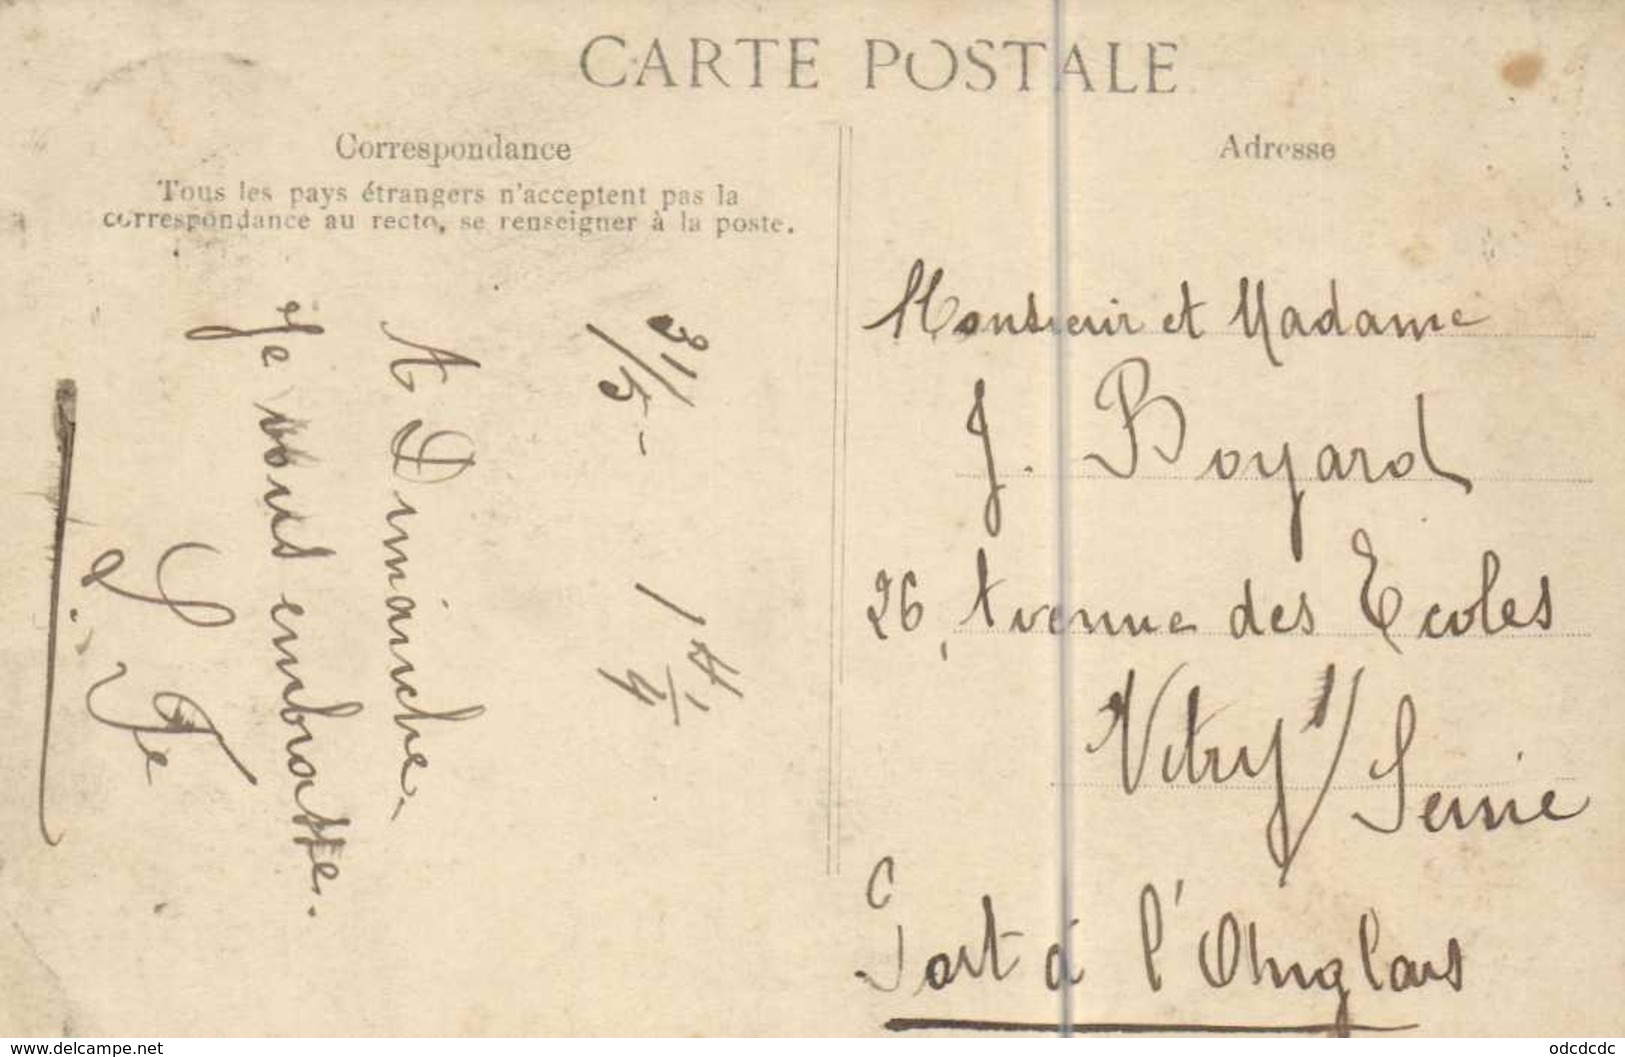 CARTE POSTALE
Correspondance
Tous les pays étrangers n'acceptent pas la
correspondance au recto, se renseigner à la poste.
31/5 -
A Dimanche.
Je vous embrasse.
Adresse
Monsieur et Madame
J. Boyard
26, Avenue des Ecoles
Vitry s/ Seine
Port à l'Anglais
www.delcampe.net
odcdcdc